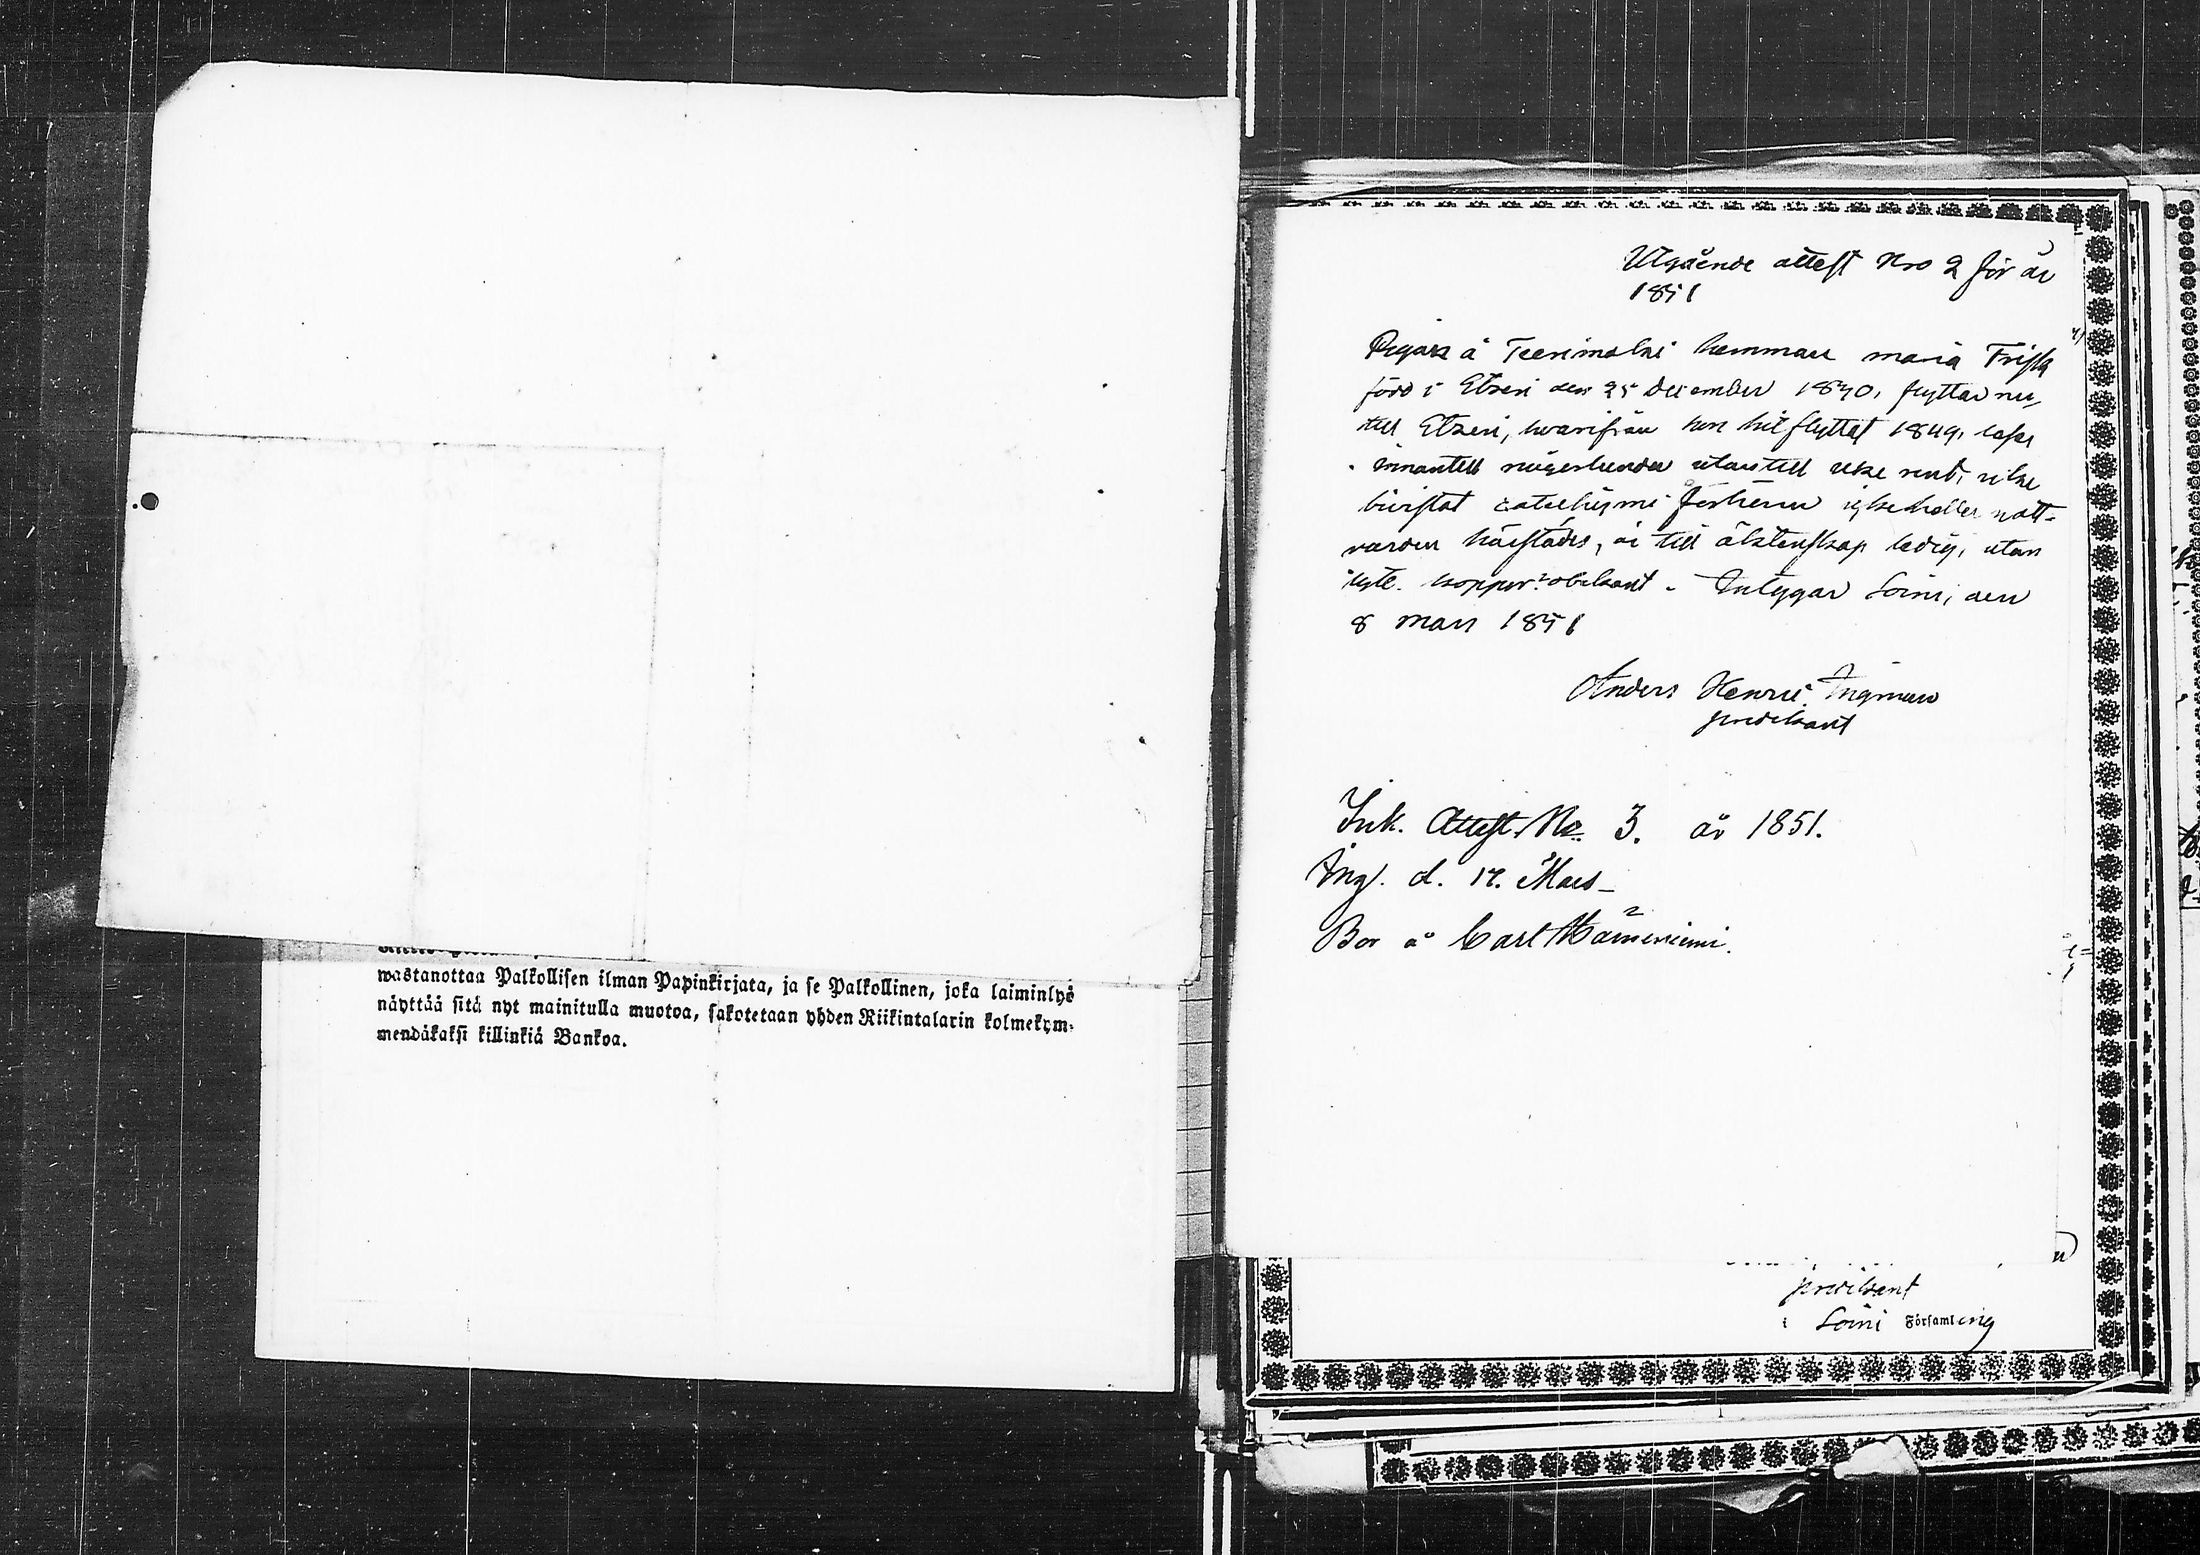 wastanottaa Palkollisen ilman Papinkirjata, ja se Palkollinen, joka laiminlyö
näyttää sitä nyt mainitulla muotoa, sakotetaan yhden Riikintalarin kolmekym-
mendäkaksi killinkiä Bankoa.
Utgående attest Nro 2 för år
1851
Pigan å Teerimäki hemman Maria Frisk
född i Etseri den 25 December 1830, flyttar nu
till Etseri, hvarifrån hon hit flyttat 1849, läser
innantill någorlunda utantill icke rent, icke
bivistat catechismi förhören icke heller natt-
varden härstädes, är till äktenskap ledig, utan
lyte. koppor: obekant. Intygar Soini, den
8 Mars 1851
Anders Henric Ingman
predikant
Ink. Attest. No 3. år 1851.
Ing. d. 17. Mars
Bor å Carl
predikant
i Soini Församling